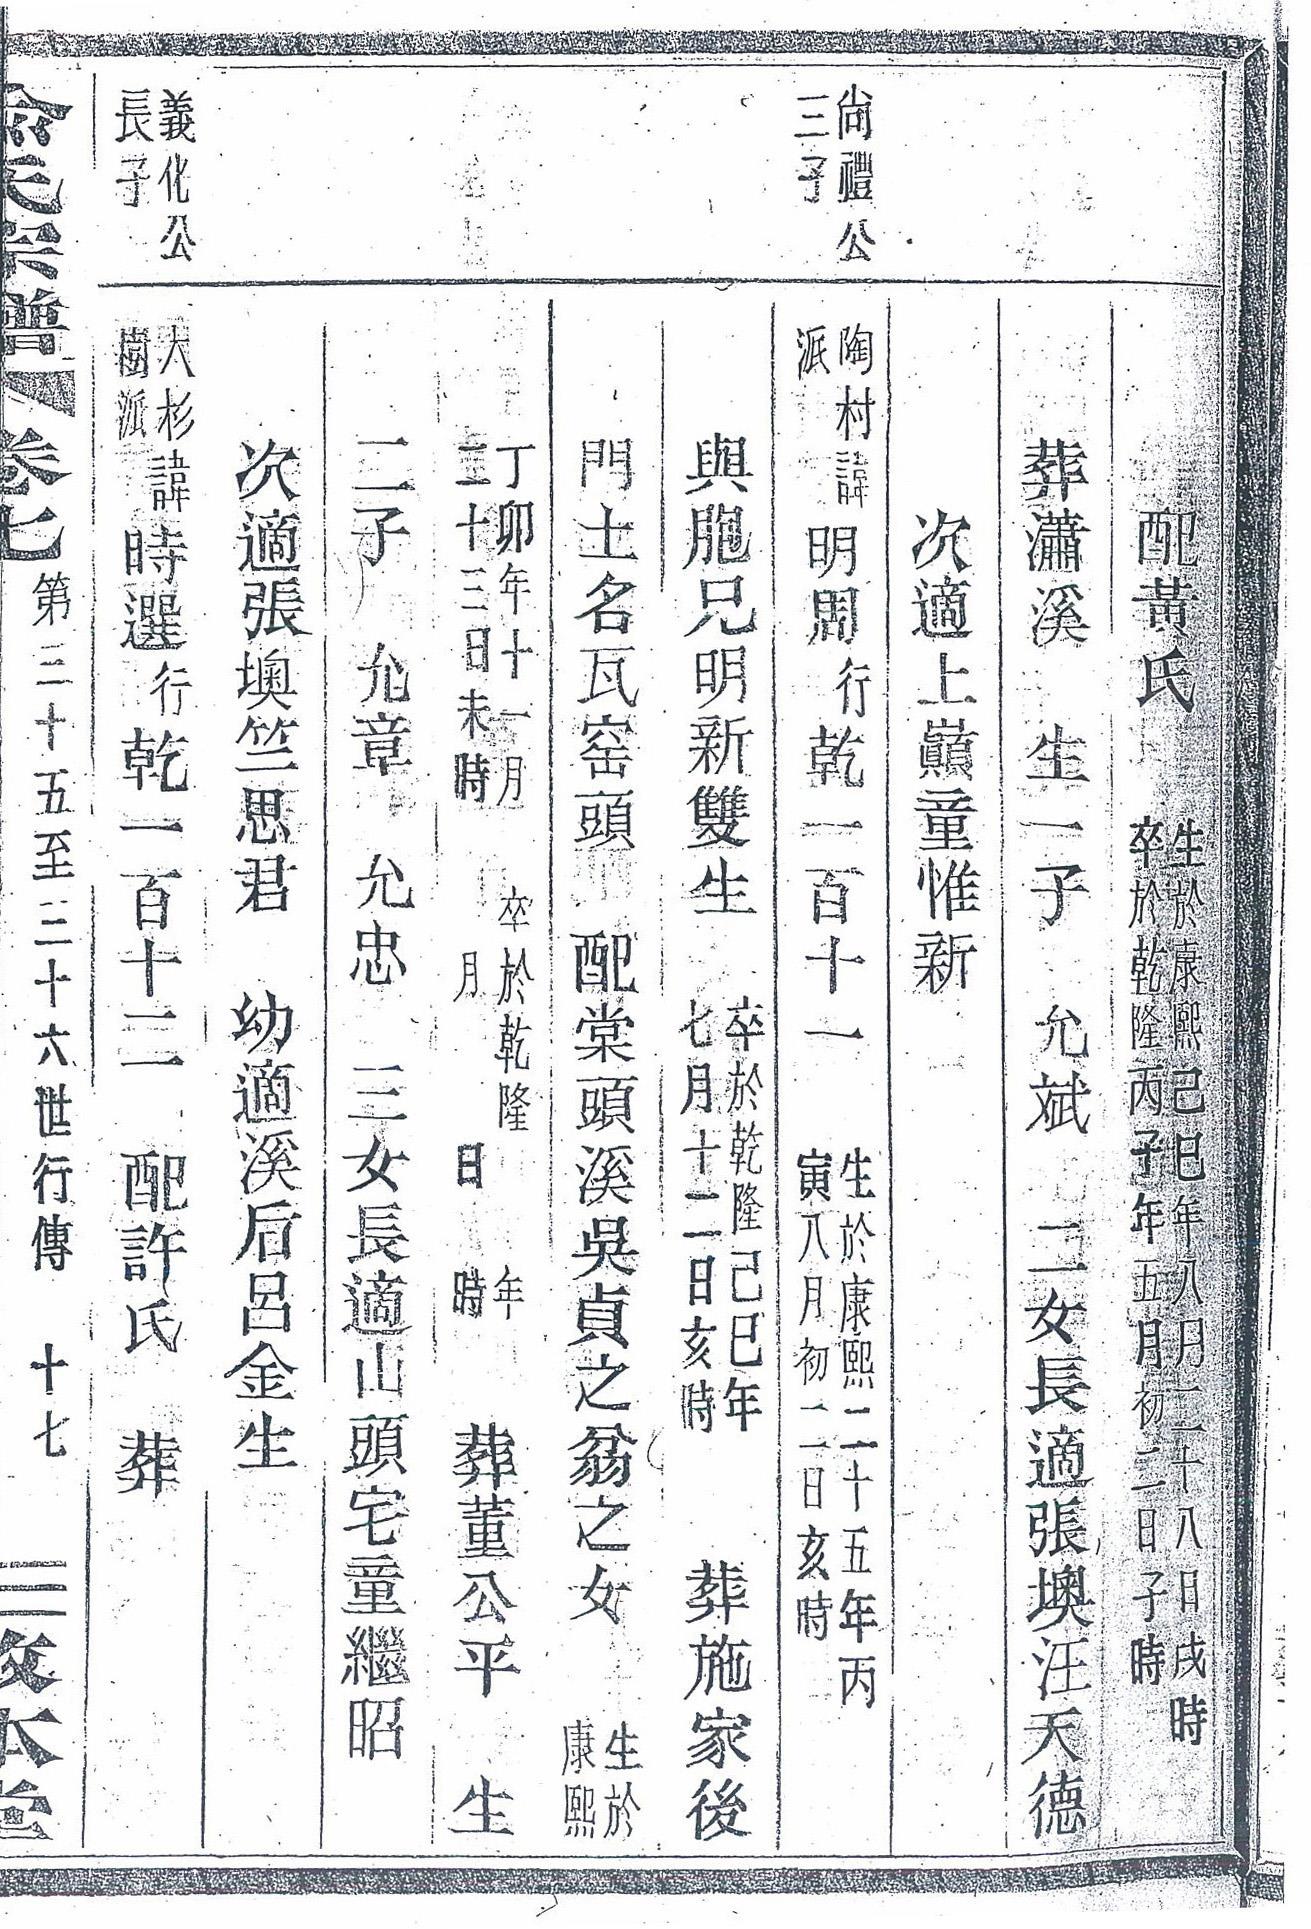 配黃氏 生於康熙己巳年八月二十八日戌時
卒於乾隆丙子年五月初二日子時
葬瀟溪 生一子 允斌 二女長適張墺汪天德
次適上巔童惟新
尚禮公
三子
陶村
派
諱明周行乾一百十一 生於康熙二十五年丙
寅八月初二日亥時
與胞兄明新雙生 卒於乾隆己巳年
七月十二日亥時 葬施家後
門土名瓦窑頭 配棠頭溪吳貞之翁之女 生於
康熙
丁卯年十一月
二十三日未時 卒於乾隆 年
月 日 時 葬董公平 生
二子 允章 允忠 三女長適山頭宅童繼昭
次適張墺竺思君 幼適溪后呂金生
義化公
長子
大杉
樹派
諱時選行乾一百十二 配許氏 葬
氏宗譜 卷七 第三十五至三十六世行傳 十七 敦本堂